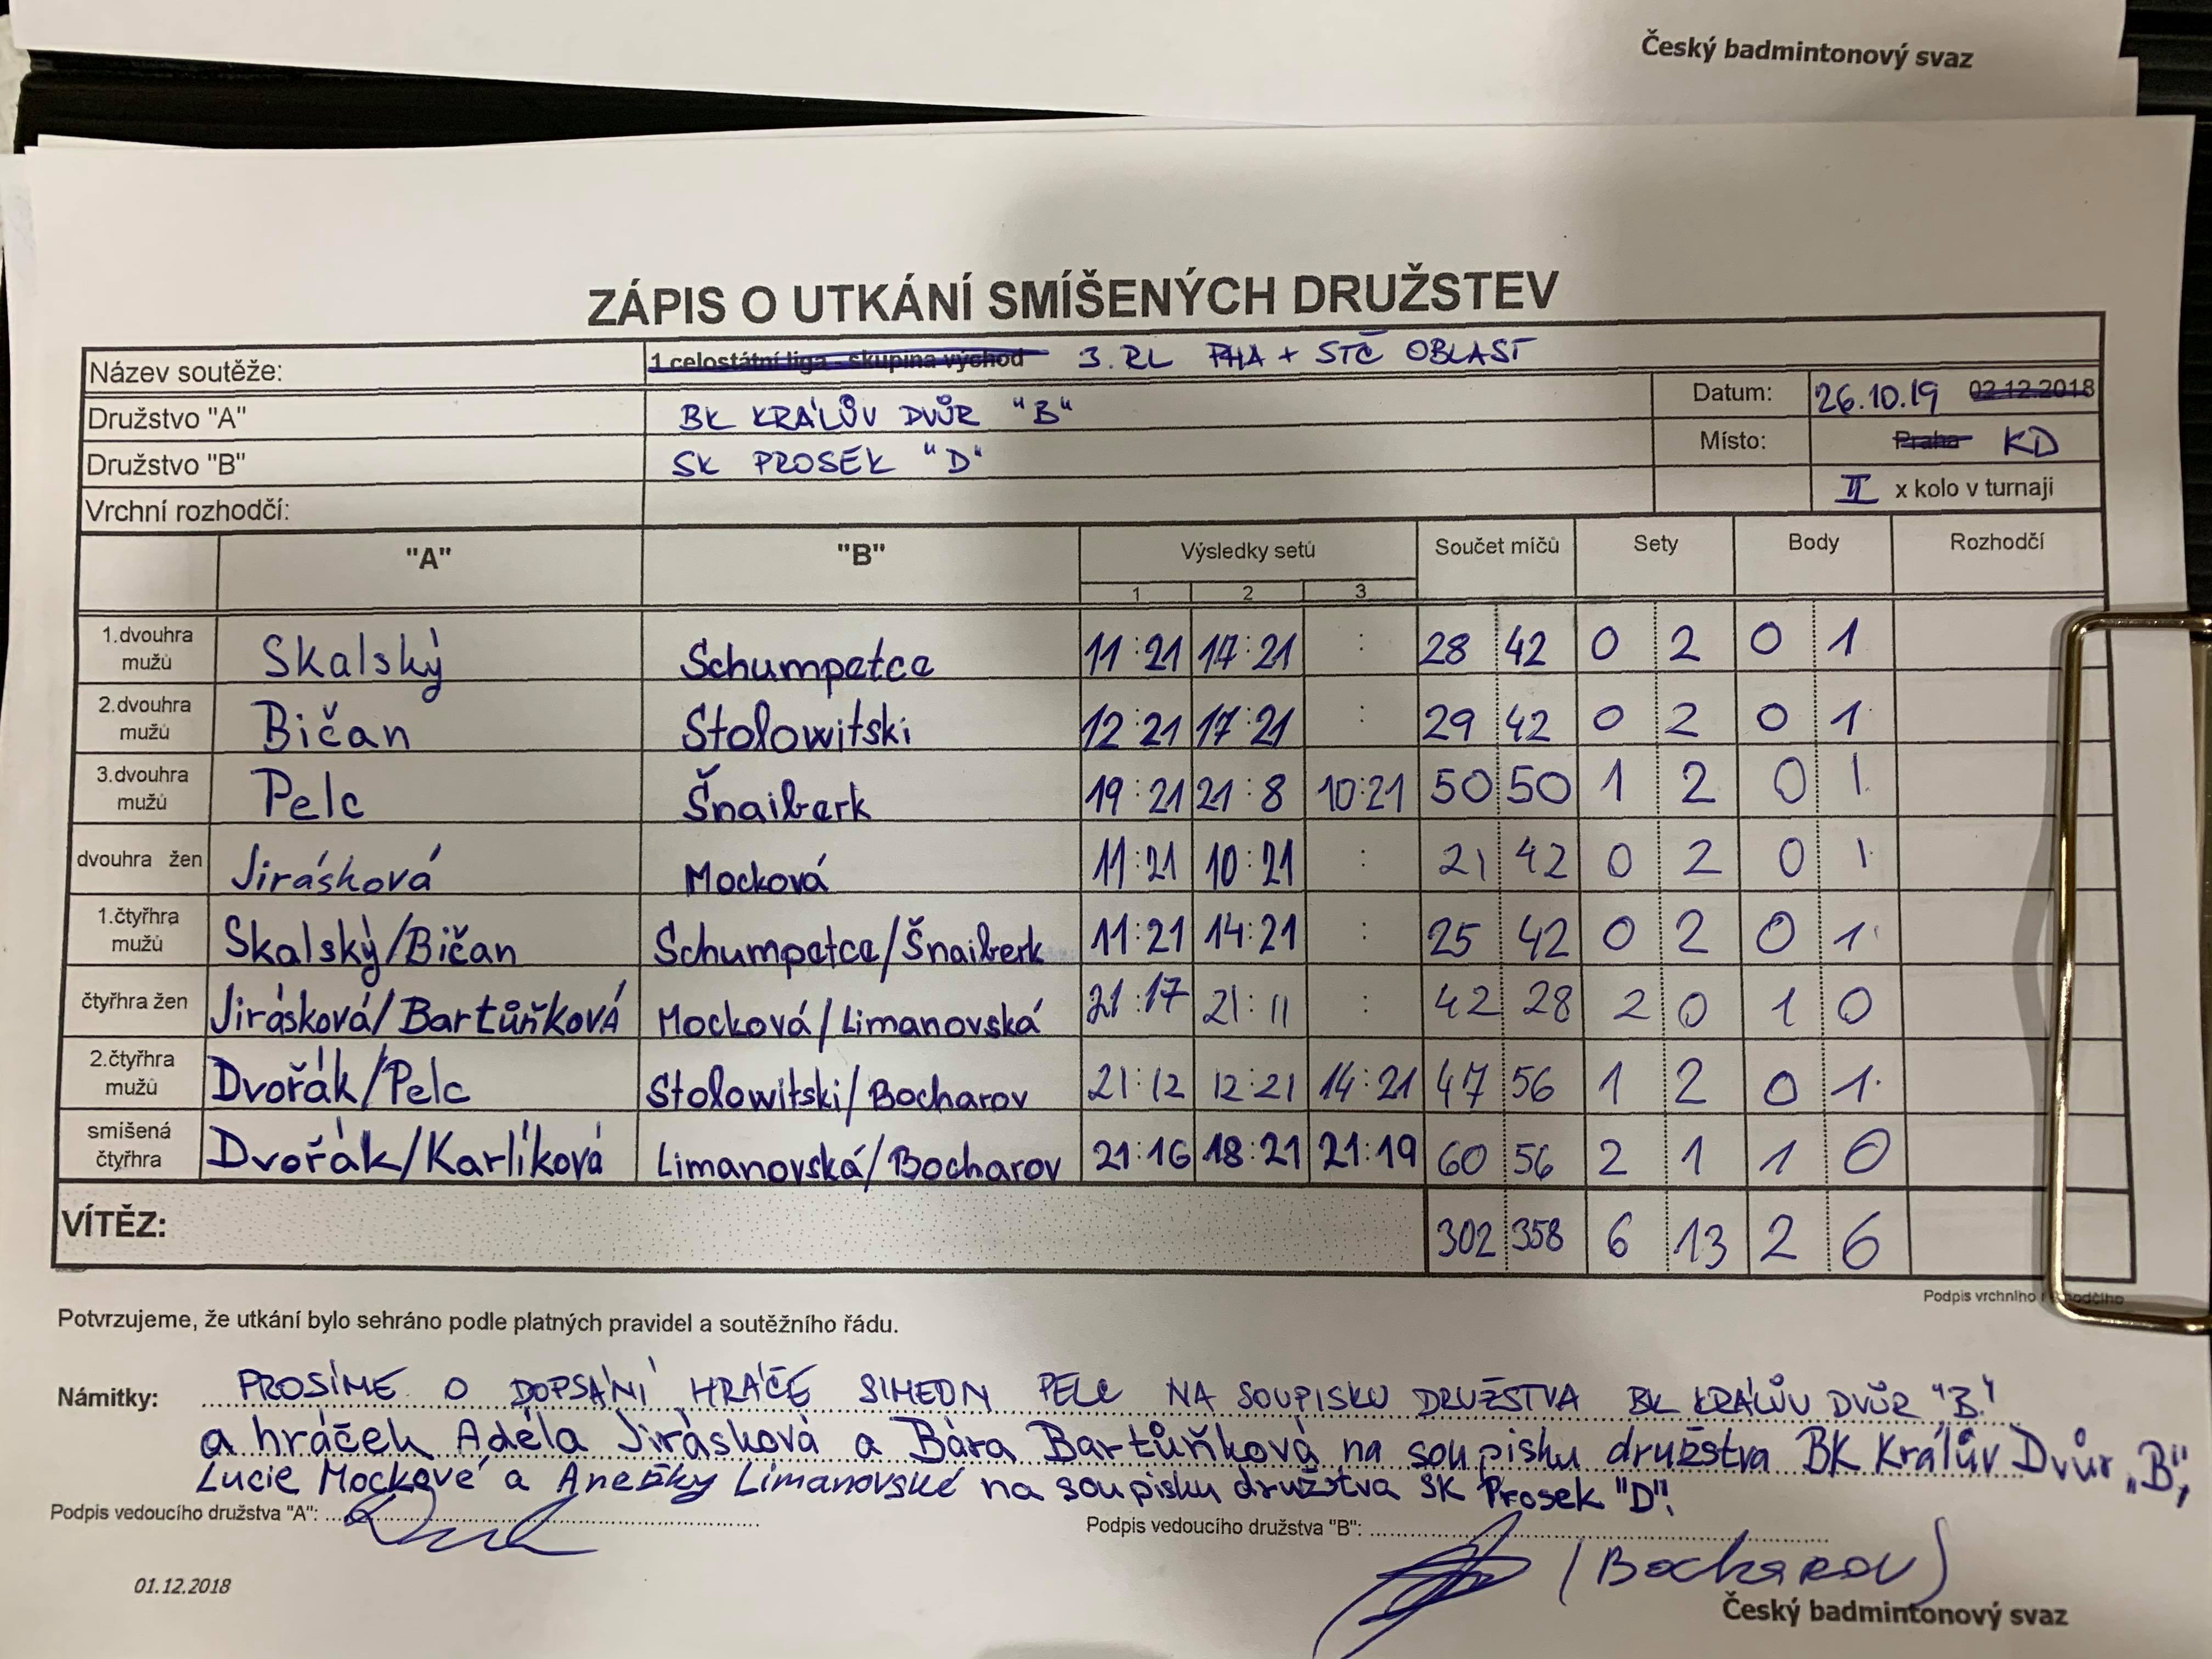 Český badmintonový svaz
ZÁPIS O UTKÁNÍ SMÍŠENÝCH DRUŽSTEV
Název soutěže: 1 celostátní liga - skupina východ 3. RL PHA + STČ OBLAST
Družstvo "A" BK KRÁLŮV DVŮR "B" Datum: 26.10.19 02.12.2018
Družstvo "B" SK PROSEK "D" Místo: Praha KD
Vrchní rozhodčí: II x kolo v turnaji
"A" "B" Výsledky setů Součet míčů Sety Body Rozhodčí
1 2 3
1.dvouhra mužů Skalský Schumpetce 11:21 17:21 : 28 42 0 2 0 1
2.dvouhra mužů Bičan Stolowitski 12:21 17:21 : 29 42 0 2 0 1
3.dvouhra mužů Pelc Šnaiberk 19:21 21:8 10:21 50 50 1 2 0 1
dvouhra žen Jirásková Mocková 11:21 10:21 : 21 42 0 2 0 1
1.čtyřhra mužů Skalský/Bičan Schumpetce/Šnaiberk 11:21 14:21 : 25 42 0 2 0 1
čtyřhra žen Jirásková/Bartůňková Mocková/Limanovská 21:17 21:11 : 42 28 2 0 1 0
2.čtyřhra mužů Dvořák/Pelc Stolowitski/Bocharov 21:12 12:21 14:21 47 56 1 2 0 1
smíšená čtyřhra Dvořák/Karlíková Limanovská/Bocharov 21:16 18:21 21:19 60 56 2 1 1 0
VÍTĚZ: 302 358 6 13 2 6
Podpis vrchního
Potvrzujeme, že utkání bylo sehráno podle platných pravidel a soutěžního řádu.
Námitky: PROSÍME O DOPSÁNÍ HRÁČE SIMEON PELC NA SOUPISKU DRUŽSTVA BK KRÁLŮV DVŮR "B"
a hráček Adéla Jirásková a Bára Bartůňková na soupisku družstva BK Králův Dvůr „B",
Lucie Mockové a Anežky Limanovské na soupisku družstva SK Prosek "D".
Podpis vedoucího družstva "A": Podpis vedoucího družstva "B":
(Bocharov)
01.12.2018
Český badmintonový svaz